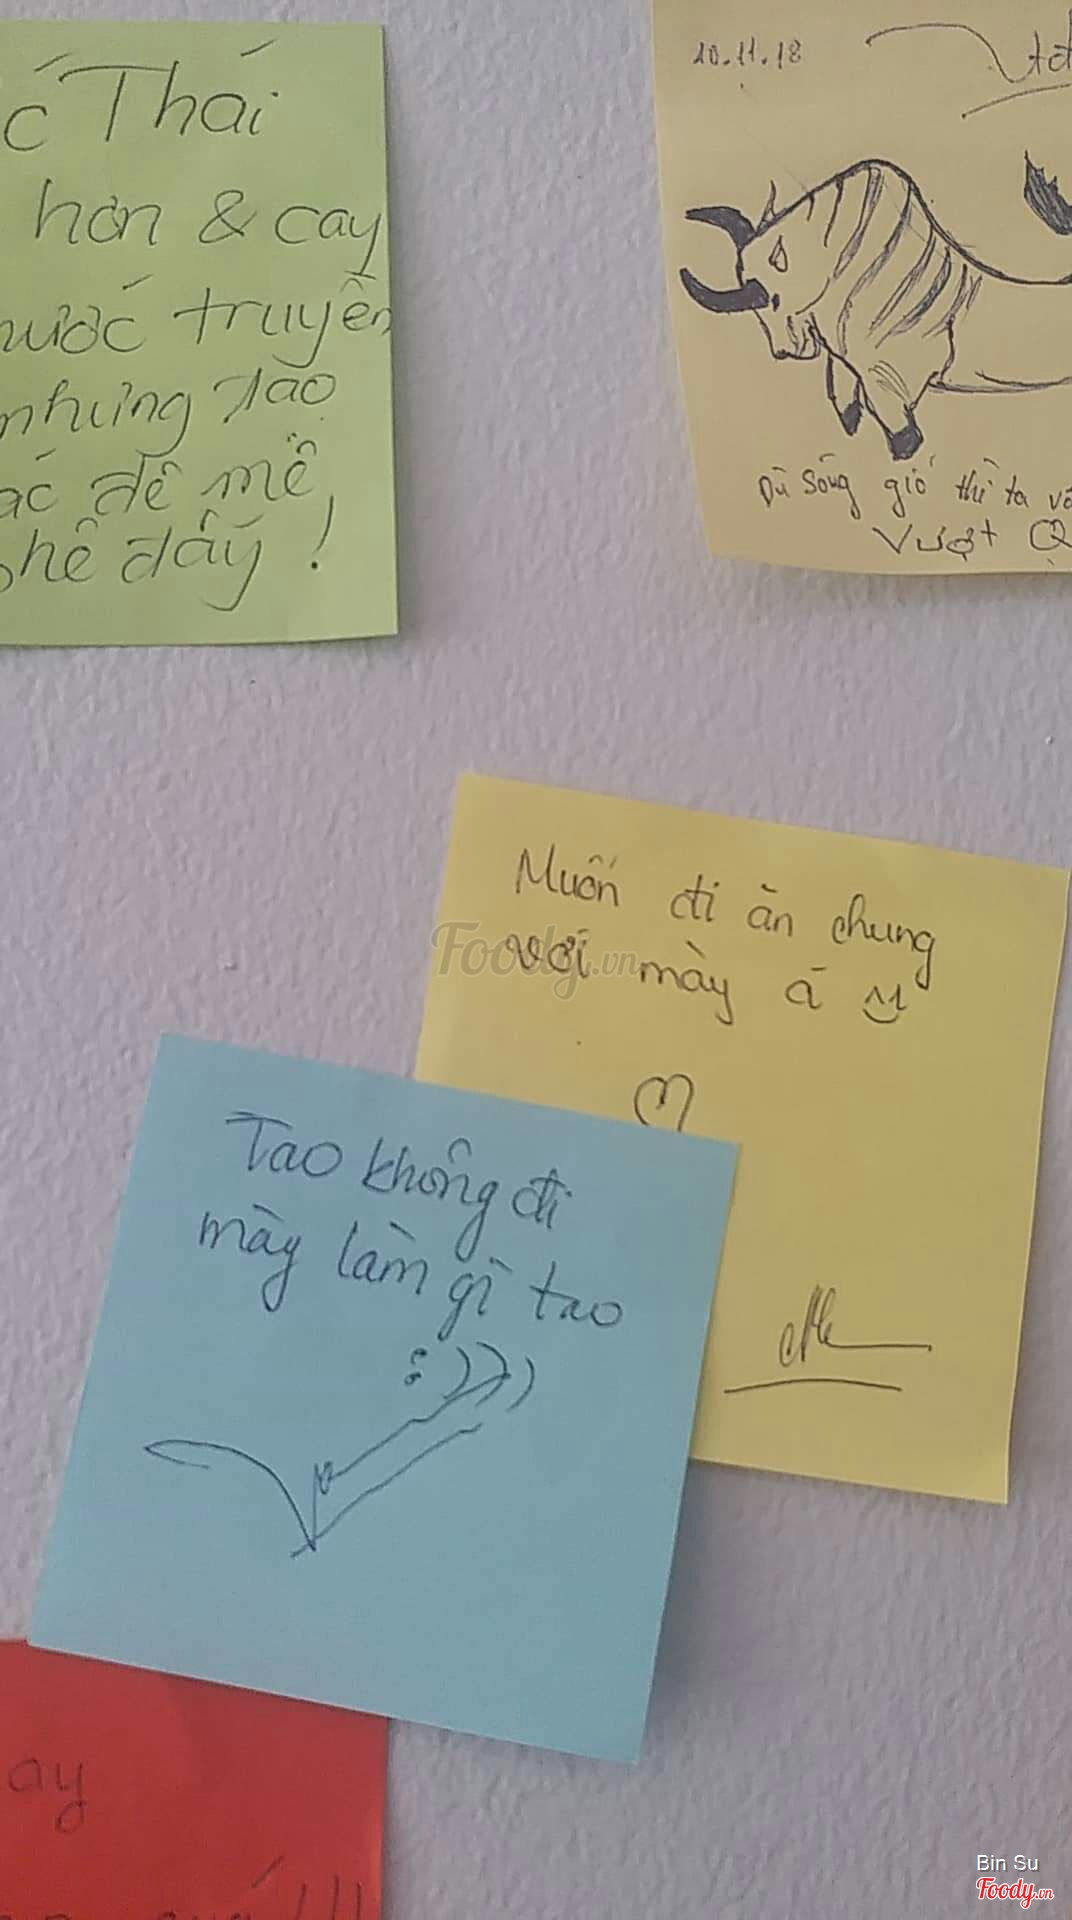 Thái
hơn & cay
truyền
nhưng tao
đê mê
đấy!
10.11.18
Dù sóng gió thì ta
Vượt Q
Muốn đi ăn chung
với mày á
Foody.vn
Tao không đi
mày làm gì tao
:))))
ay
!!!
Bin Su
Foody.vn